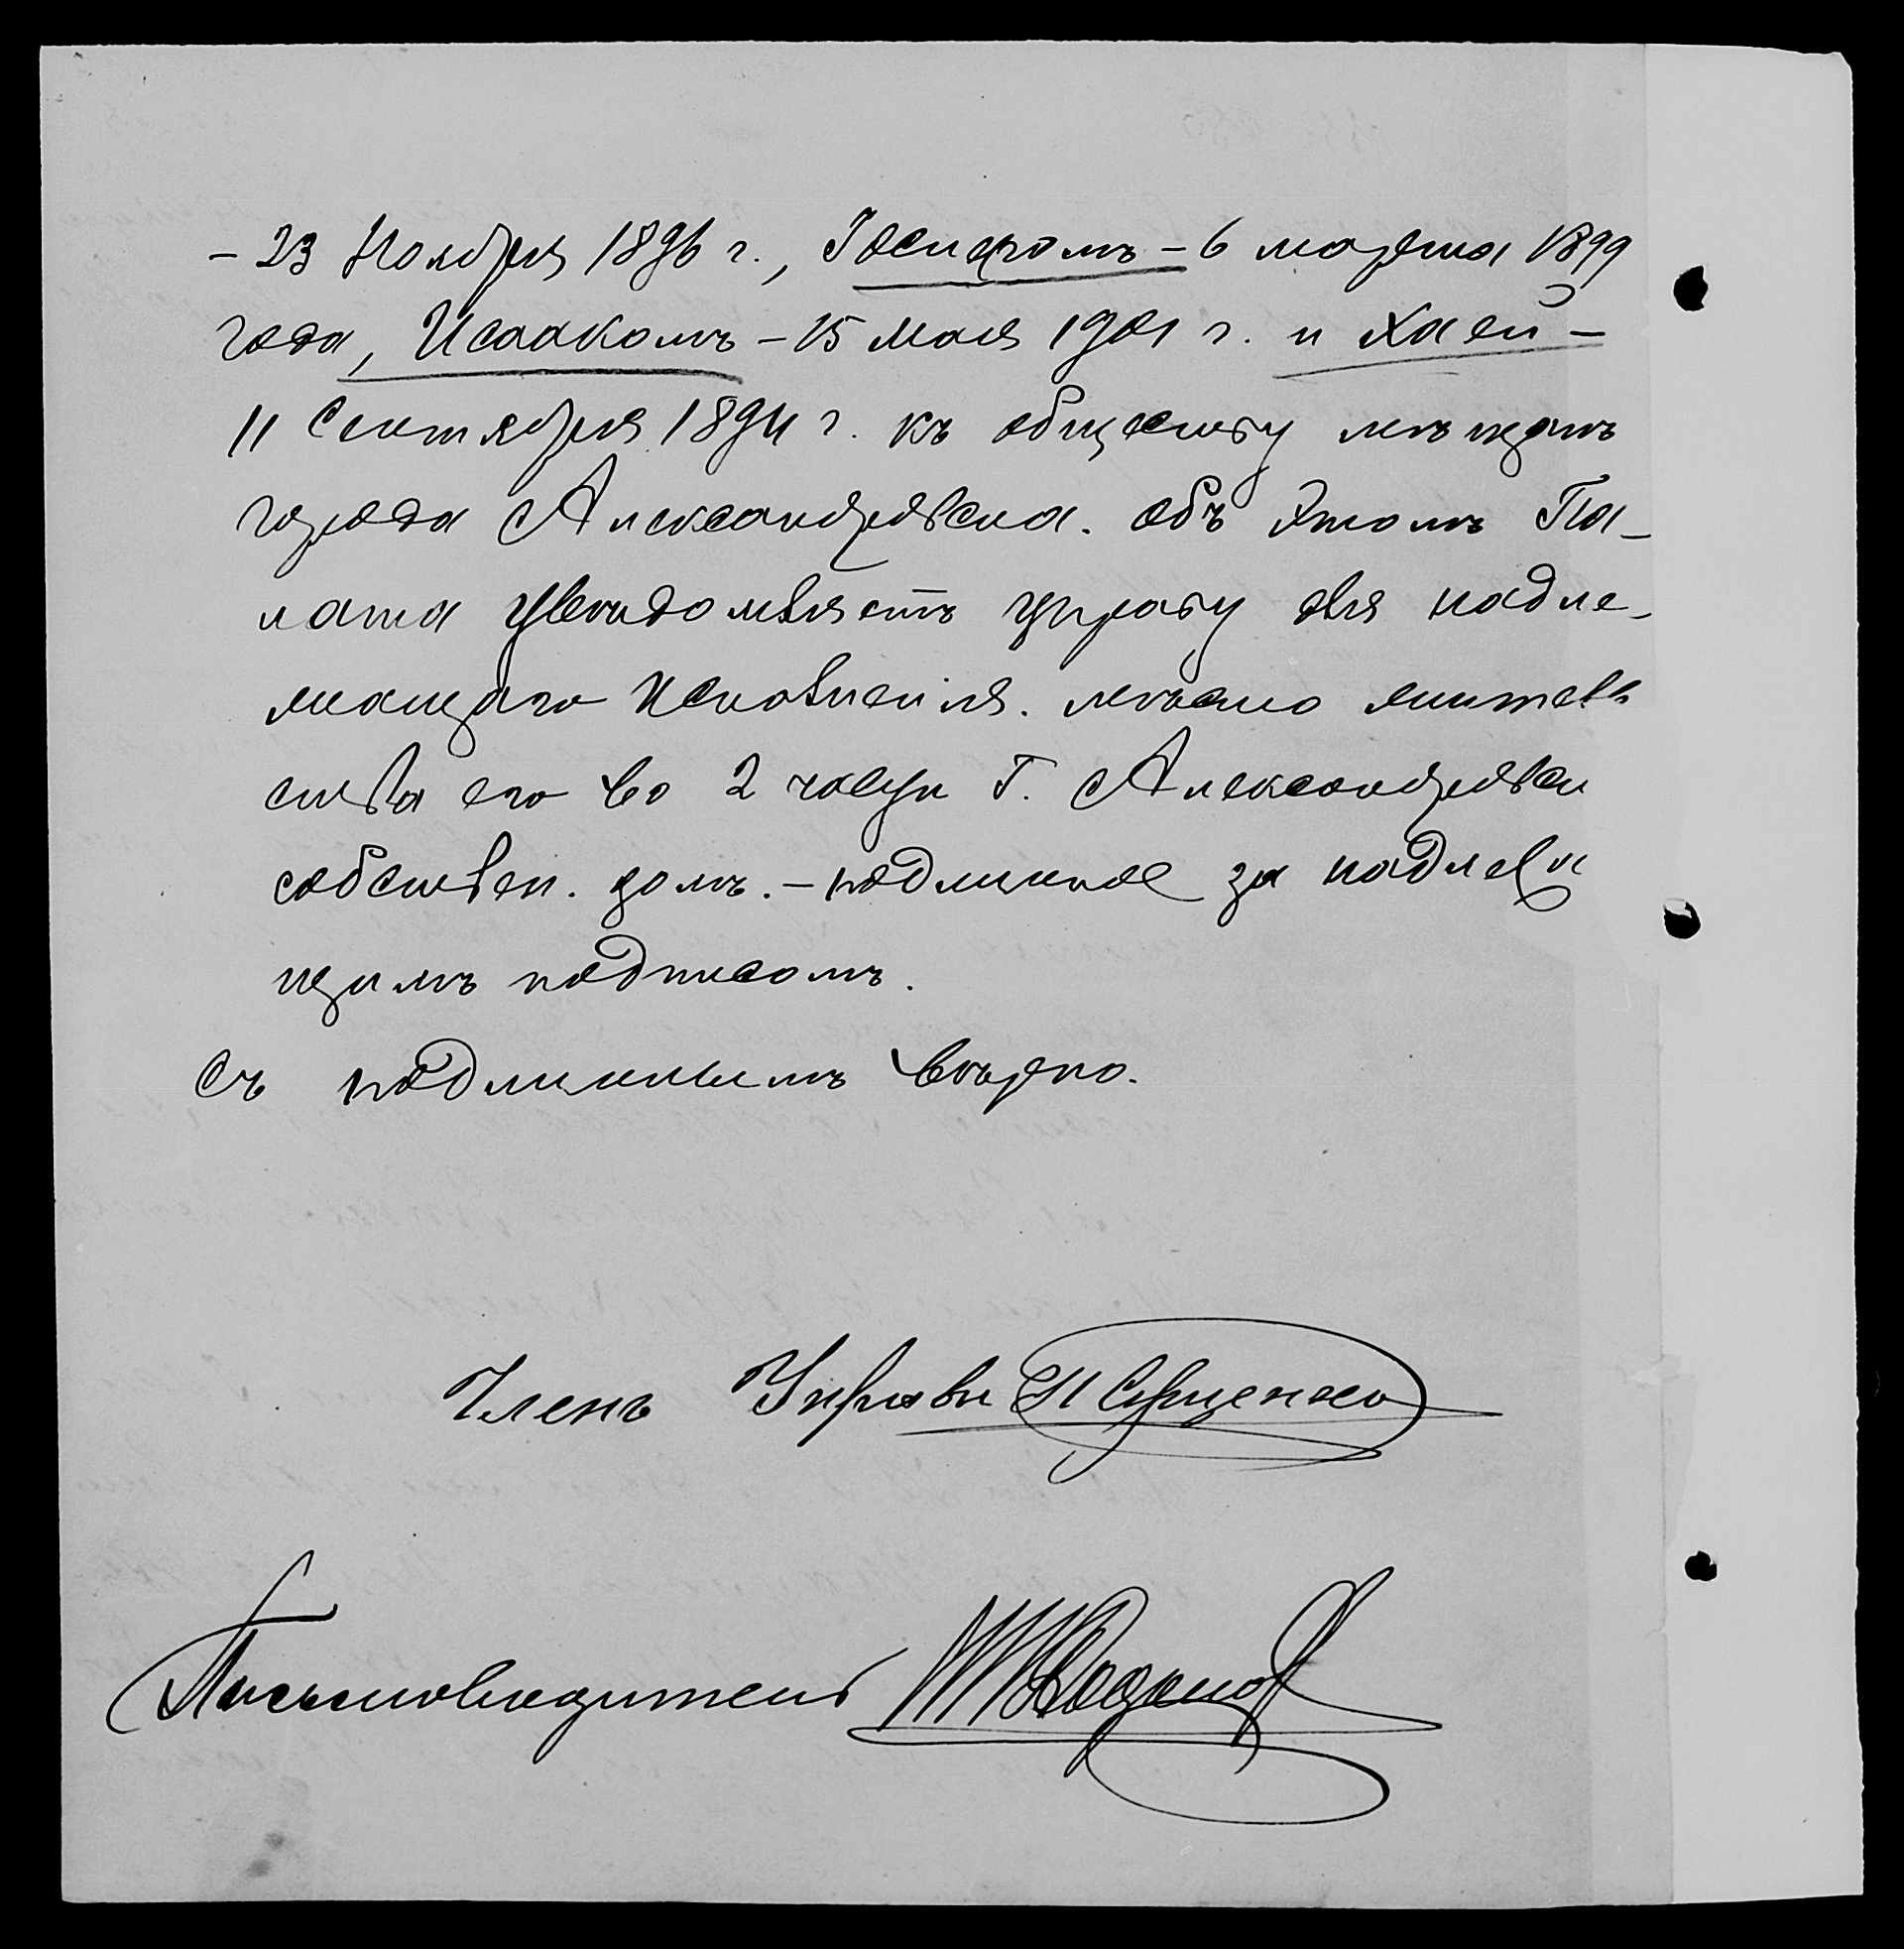 - 23 Ноября 1896 г., Іосифомъ - 6 марта 1899
года, Исаакомъ - 15 Мая 1901 г. и Хаей -
11 Сентября 1894 г. къ обществу мѣщанъ
города Александровска. Объ этомъ Па-
лата увѣдомляетъ управу для надле-
жащаго исполненія. мѣсто житель
ства его во 2 части г. Александровска
собствен. домъ. - подлинное за надлежа
щимъ подписомъ.
Съ подлиннымъ вѣрно.
Членъ Управы
Письмоводитель